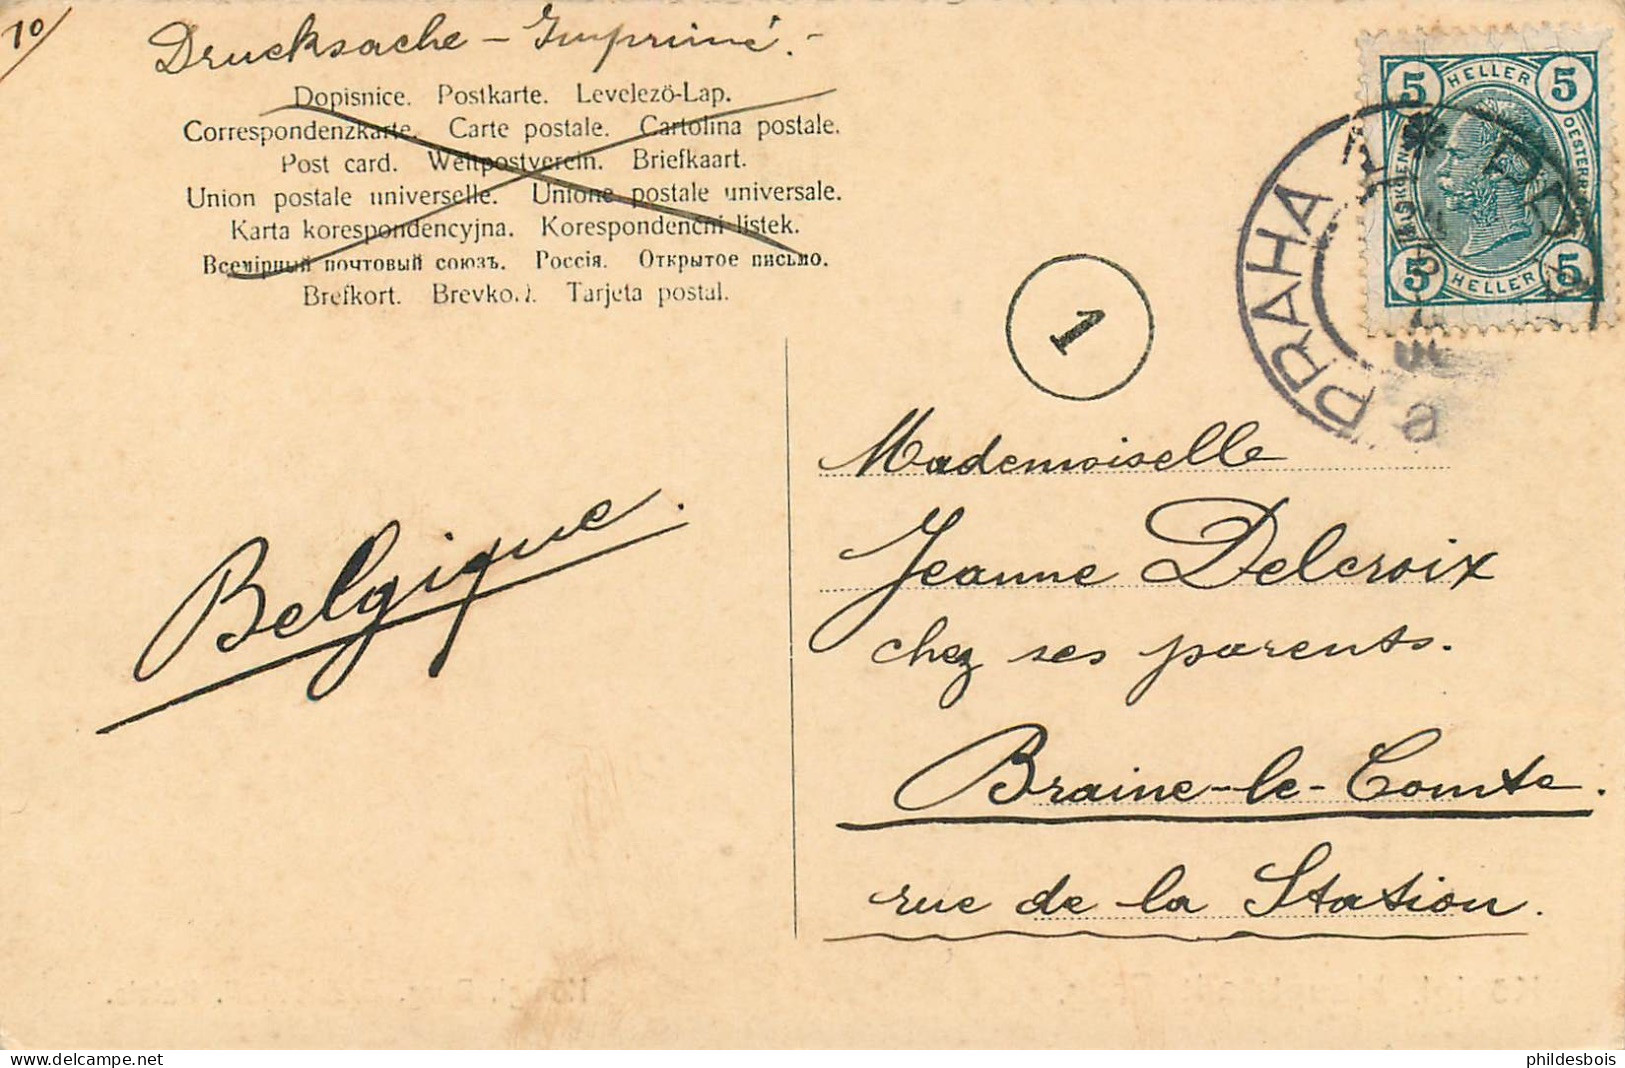 10/
Drucksache - Imprimé. -
Dopisnice. Postkarte. Levelezö-Lap.
Correspondenzkarte. Carte postale. Cartolina postale.
Post card. Weltpostverein. Briefkaart.
Union postale universelle. Unione postale universale.
Karta korespondencyjna. Korespondenčni listek.
Всемірный почтовый союзъ. Россія. Открытое письмо.
Brefkort. Brevkort. Tarjeta postal.
5 HELLER 5
5 HELLER 5
PRAHA
1
Mademoiselle
Jeanne Delcroix
chez ses parents.
Belgique.
Braine-le-Comte.
rue de la Station.
delcampe.net
phildesbois